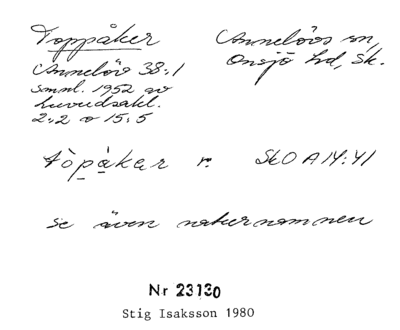 Toppåker
Annelövs sn,
Onsjö hd, Sk.
Annelöv 38:1
smnl. 1952 av
huvudsakl.
2:2 o 15:5
tòpàkar r. SkO A14:41
se även naturnamnen
Nr 23130
Stig Isaksson 1980